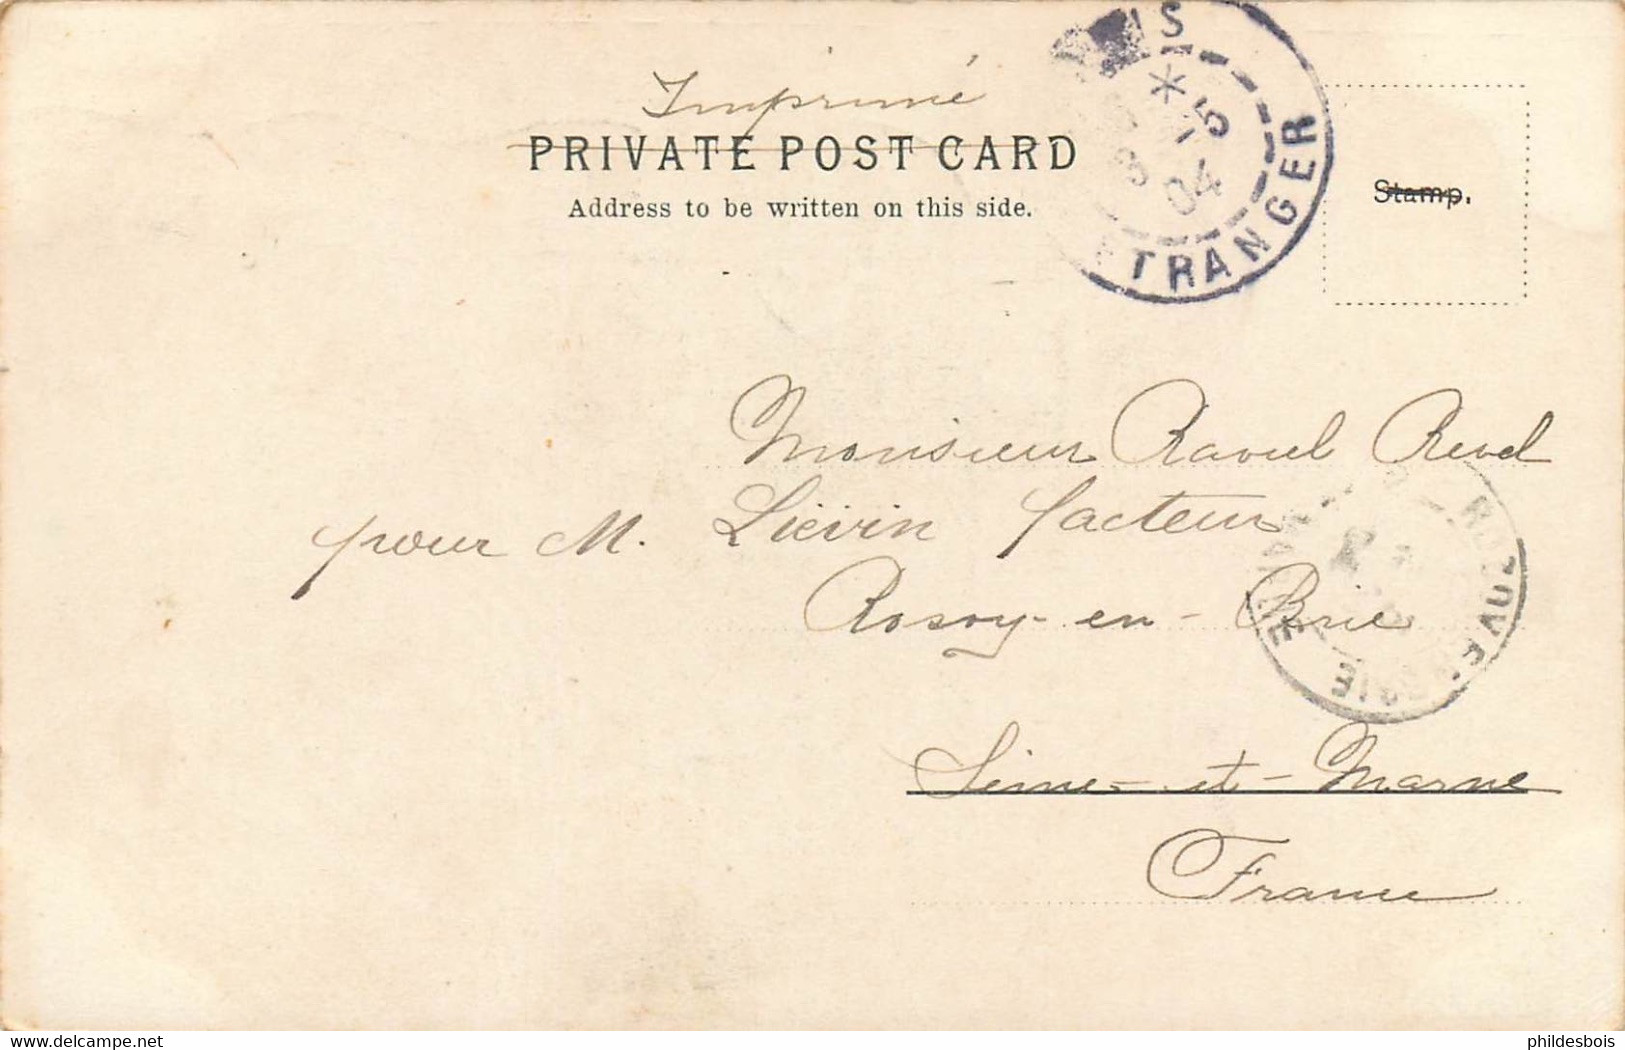 Imprimé
PRIVATE POST CARD
Address to be written on this side.
Stamp.
ETRANGER
5
04
Monsieur Raoul Revel
pour M. Liévin facteur
Rosoy-en-Brie
Seine-et-Marne
France
delcampe.net
phildesbois